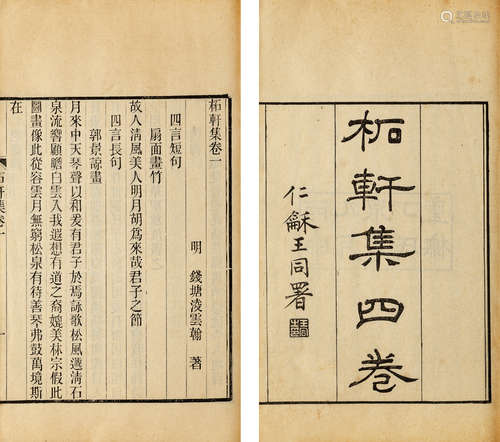 柘軒集四卷
仁龢王同署
柘軒集卷一
明 錢塘淩雲翰 著
四言短句
扇面畫竹
故人清風美人明月胡爲來哉君子之節
四言長句
郭景諒畫
月來中天琴聲以和爰有君子於焉詠歌松風邇清石
泉流響顧瞻白雲入我遐想有道之裔媲美林宗假此
圖畫像此從容雲月無窮松泉有待善琴弗鼓萬境斯
在
柘軒集卷一
一